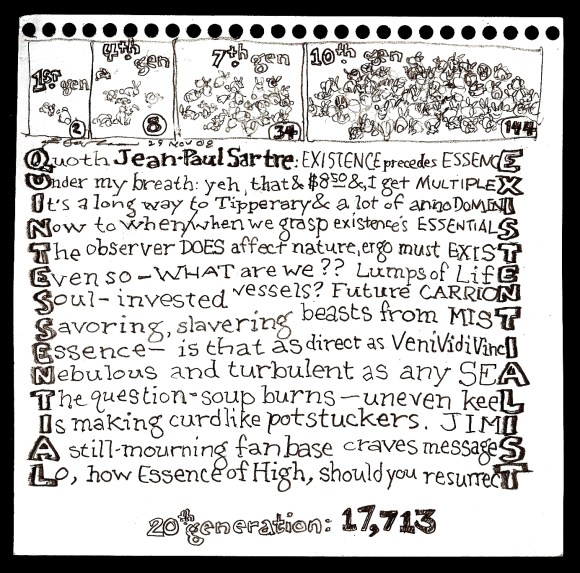 1st gen
2
4th gen
8
7th gen
34
10th gen
144
29 NOV 08
Quoth Jean-Paul Sartre: EXISTENCE precedes ESSENCE
Under my breath: yeh, that & $8.50 &, I get MULTIPLEX
It's a long way to Tipperary & a lot of anino DOMINI
Now to when/when we grasp existence's ESSENTIALS
The observer DOES affect nature, ergo must EXIST
Even so — WHAT are we ?? Lumps of LifE
Soul-invested vessels? Future CARRION
Savoring, slavering beasts from MIST
Essence — is that as direct as VeniVidiVinci
Nebulous and turbulent as any SEA
The question-soup burns — uneven keeL
Is making curdlike potstuckers. JIMI
A still-mourning fanbase craves messageS
Lo, how Essence of High, should you resurrecT
20th generation: 17,713